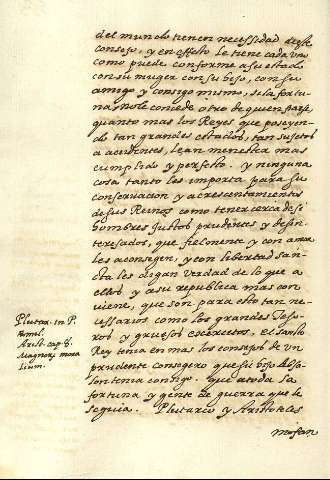 del mundo tienen necessidad deste
consejo, y en effeto le tiene cada vno
como puede conforme a su estado
con su muger con su hijo, con su
amigo y consigo mismo, si la fortu
na no le concede otro de quien
quanto mas los Reyes que poseyen
do tan grandes estados, tan sujetos
a acidentes, le an menester mas
cumplido y perfeto. y ninguna
cosa tanto les importa para su
conseruacion y acrescentamiento
de sus Reinos como tener cerca de si
hombres justos prudentes y desin
teresados, que fielmente y con amor
les aconsegen, y con libertad sanc
ta les digan verdad de lo que a
ellos y a su republica mas con
uiene, que son para esto tan ne
cessarios como los grandes Teso
ros y gruesos exercitos. el sancto
Rey tenia en mas los consejos de un
prudente consegero que su hijo Absa
lon tenia consigo. que a toda la
fortuna y gente de guerra que le
seguia. Plutarco y Aristoteles
Plutar. in P.
Arist. cap. 8.
Magnor. mora
lium.